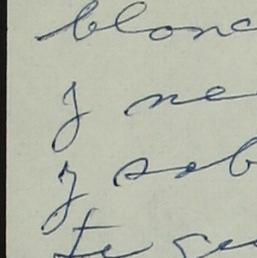 blanc
y ne
y sob
te qu